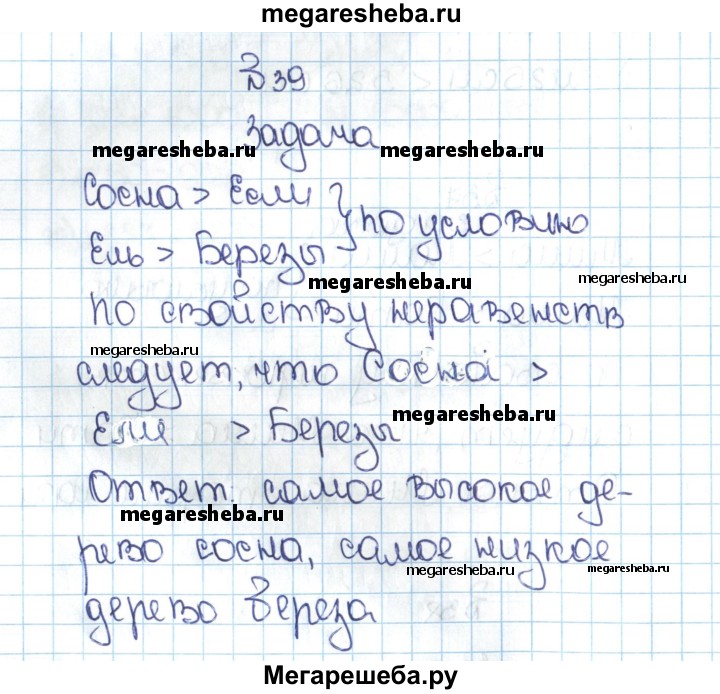 megaresheba.ru
№39
Задача
megaresheba.ru megaresheba.ru
Сосна > Ели } по условию
Ель > Березы
megaresheba.ru megaresheba.ru
по свойству неравенств
megaresheba.ru
следует, что Сосна >
megaresheba.ru
Ели > Березы
Ответ: самое высокое де-
megaresheba.ru
рево сосна, самое низкое
megaresheba.ru megaresheba.ru
дерево береза
Мегарешеба.ру